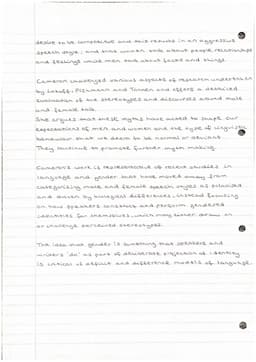 desire to be competitive and this results in an aggressive
speech style; and that women talk about people, relationships
and feelings while men talk about facts and things.
Cameron challenged various aspects of research undertaken
by Lakoff, Fishmann and Tannen and offers a detailed
evaluation of the stereotypes and discourses around male
and female talk.
She argues that these myths have acted to shape our
expectations of men and women and the types of linguistic
behaviour that we deem to be normal or deviant.
They continue to promote further myth making.
Cameron's work is representative of recent studies in
language and gender that have moved away from
categorising male and female speech styles as polarised
and driven by biological differences, instead focusing
on how speakers construct and perform gendered
identities for themselves, which may either draw on
or challenge perceived stereotypes.
The idea that gender is something that speakers and
writers 'do' as part of deliberate projection of identity
is critical of deficit and difference models of language.